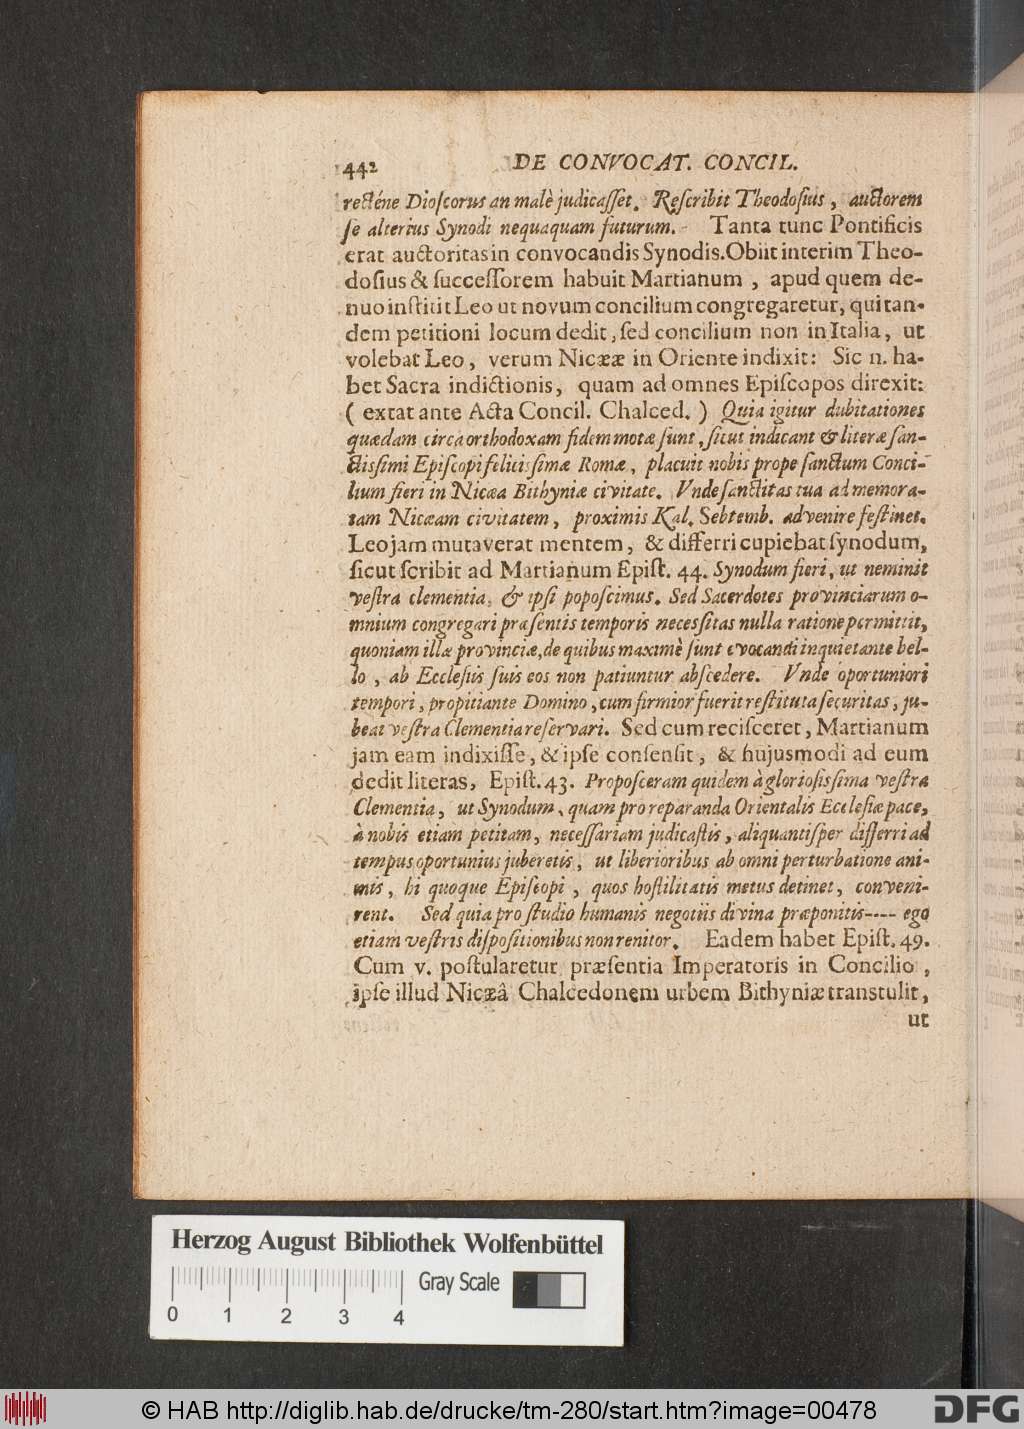 442 DE CONVOCAT. CONCIL.
recténe Dioſcorus an malè judicaſſet. Reſcribit Theodoſius, auctorem
ſe alterius Synodi nequaquam futurum. Tanta tunc Pontificis
erat auctoritas in convocandis Synodis. Obiit interim Theo-
doſius & ſucceſſorem habuit Martianum, apud quem de-
nuo inſtitit Leo ut novum concilium congregaretur, qui tan-
dem petitioni locum dedit, ſed concilium non in Italia, ut
volebat Leo, verum Nicææ in Oriente indixit: Sic n. ha-
bet Sacra indictionis, quam ad omnes Epiſcopos direxit:
( extat ante Acta Concil. Chalced. ) Quia igitur dubitationes
quædam circa orthodoxam fidem motæ ſunt, ſicut indicant & literæ ſan-
ctiſſimi Epiſcopi feliciſſimæ Romæ, placuit nobis prope ſanctum Conci-
lium fieri in Nicæa Bithyniæ civitate. Vnde ſanctitas tua ad memora-
tam Nicæam civitatem, proximis Kal. Sebtemb. advenire feſtinet.
Leo jam mutaverat mentem, & differri cupiebat ſynodum,
ſicut ſcribit ad Martianum Epiſt. 44. Synodum fieri, ut neminit
veſtra clementia, & ipſi popoſcimus. Sed Sacerdotes provinciarum o-
mnium congregari præſentis temporis neceſſitas nulla ratione permittit,
quoniam illæ provinciæ, de quibus maximè ſunt evocandi inquietante bel-
lo, ab Eccleſiis ſuis eos non patiuntur abſcedere. Vnde oportuniori
tempori, propitiante Domino, cum firmior fuerit reſtituta ſecuritas, ju-
beat veſtra Clementia reſervari. Sed cum reciſceret, Martianum
jam eam indixiſſe, & ipſe conſenſit, & hujusmodi ad eum
dedit literas, Epiſt. 43. Propoſceram quidem à glorioſiſſima veſtra
Clementia, ut Synodum, quam pro reparanda Orientalis Eccleſiæ pace,
à nobis etiam petitam, neceſſariam judicaſtis, aliquantiſper differri ad
tempus oportunius juberetis, ut liberioribus ab omni perturbatione ani-
mis, hi quoque Epiſcopi, quos hoſtilitatis metus detinet, conveni-
rent. Sed quia pro ſtudio humanis negotiis divina præponitis---- ego
etiam veſtris diſpoſitionibus non renitor. Eadem habet Epiſt. 49.
Cum v. poſtularetur præſentia Imperatoris in Concilio,
ipſe illud Nicææâ Chalcedonem urbem Bithyniæ transtulit,
ut
Herzog August Bibliothek Wolfenbüttel
Gray Scale
0 1 2 3 4
© HAB http://diglib.hab.de/drucke/tm-280/start.htm?image=00478
DFG